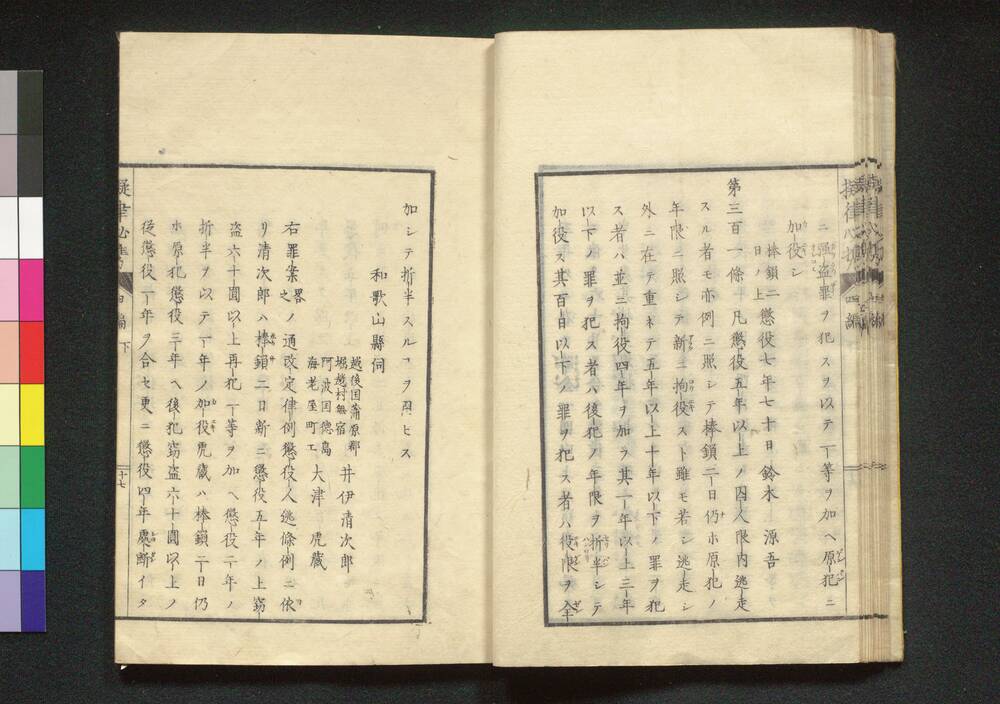 ニ強盗罪ヲ犯スヲ以テ一等ヲ加ヘ原犯ニ
加役シ
棒鎖二日ノ上
懲役七年七十日 鈴木 源吾
第三百一條 凡懲役五年以上ノ囚人限内逃走
スル者モ亦例ニ照シテ棒鎖二日仍ホ原犯ノ
年限ニ照シテ新ニ拘役スト雖モ若シ逃走シ
外ニ在テ重ネテ五年以上十年以下ノ罪ヲ犯
ス者ハ並ニ拘役四年ヲ加ラ其一年以上三年
以下ノ罪ヲ犯ス者ハ後犯ノ年限ヲ折半シテ
加役ス其百日以下ノ罪ヲ犯ス者ハ役限ヲ全
加シテ折半スルヿヲ用ヒス
和歌山縣伺
越後国蒲原郡
堀越村無宿
井伊清次郎
阿波国徳島
海老屋町工
大津 虎藏
右罪案畧之ノ通改定律例懲役人逃條例ニ依
リ清次郎ハ棒鎖二日新ニ懲役五年ノ上窃
盗六十圓以上再犯一等ヲ加ヘ懲役二年ノ
折半ヲ以テ一年ノ加役虎藏ハ棒鎖二日仍
ホ原犯懲役三年ヘ後犯窃盗六十圓以上ノ
従懲役一年ヲ合セ更ニ懲役四年處断イタ
擬律必携
四編 下
十七
四編